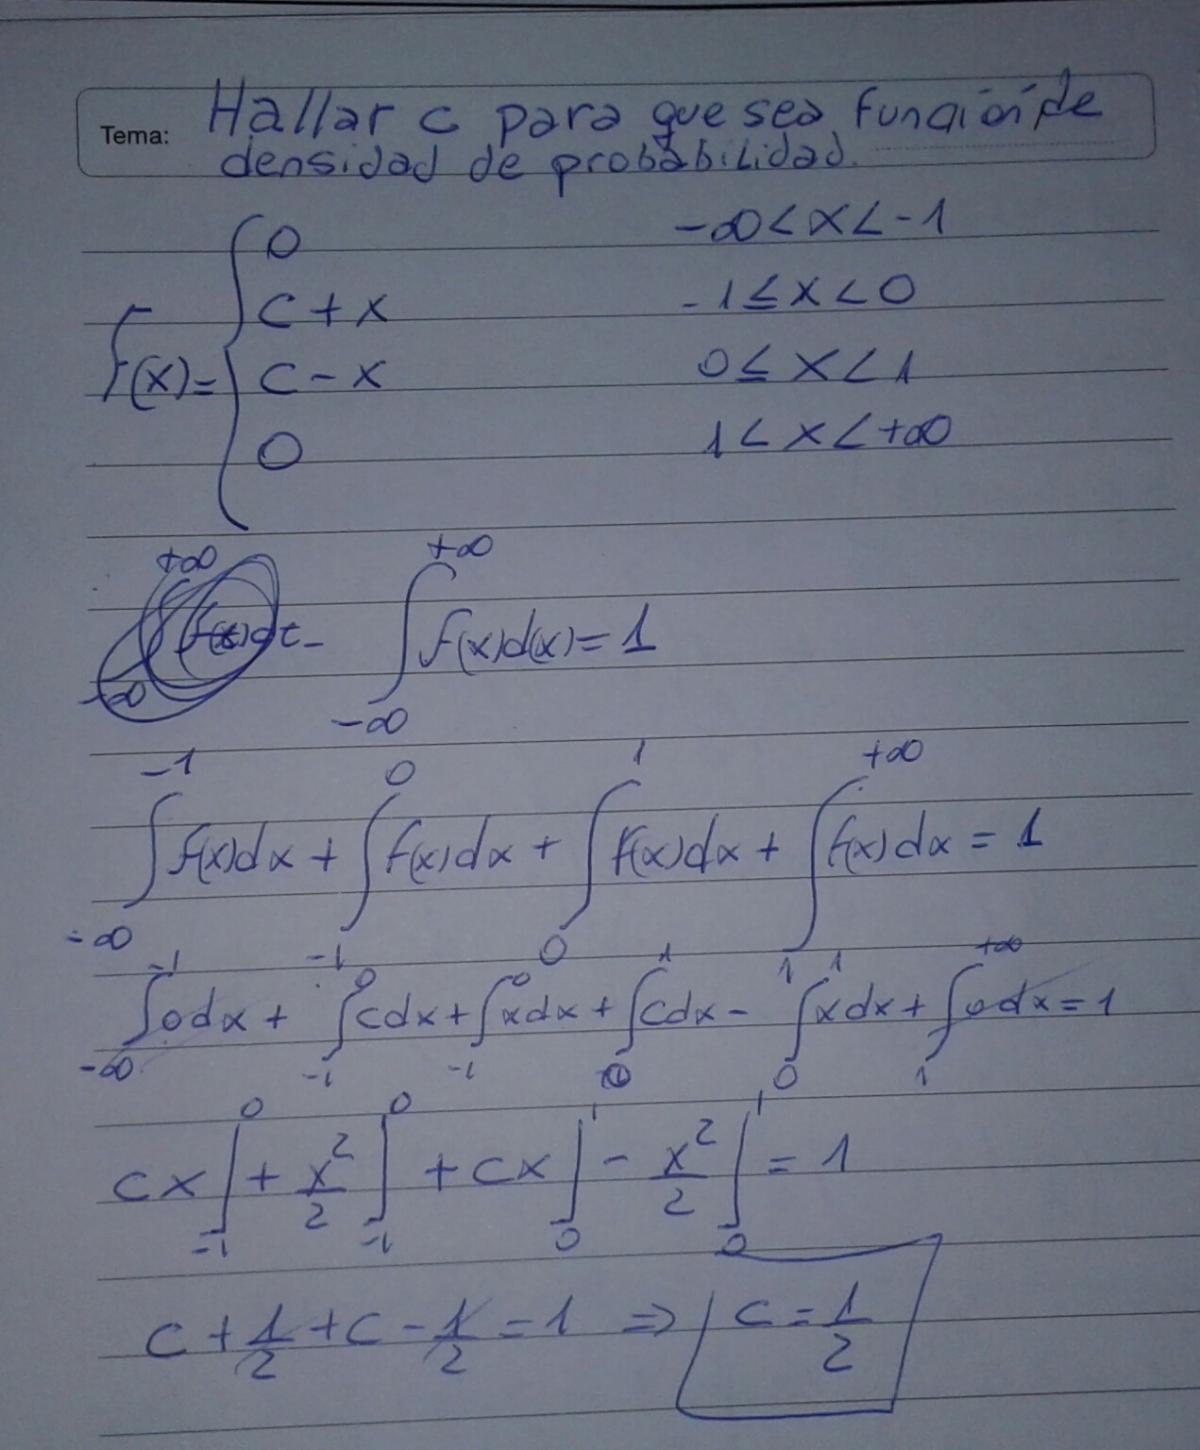 Tema: Hallar c para que sea función de
densidad de probabilidad.
f(x) = { 0    -∞ < x < -1
c + x    -1 ≤ x < 0
c - x    0 ≤ x < 1
0    1 < x < +∞
∫_{-∞}^{+∞} f(x)d(x) = 1
∫_{-∞}^{-1} f(x)dx + ∫_{-1}^{0} f(x)dx + ∫_{0}^{1} f(x)dx + ∫_{1}^{+∞} f(x)dx = 1
∫_{-∞}^{-1} 0dx + ∫_{-1}^{0} cdx + ∫_{-1}^{0} xdx + ∫_{0}^{1} cdx - ∫_{0}^{1} xdx + ∫_{1}^{+∞} 0dx = 1
cx|_{-1}^{0} + x²/2|_{-1}^{0} + cx|_{0}^{1} - x²/2|_{0}^{1} = 1
c + 1/2 + c - 1/2 = 1 ⇒ c = 1/2